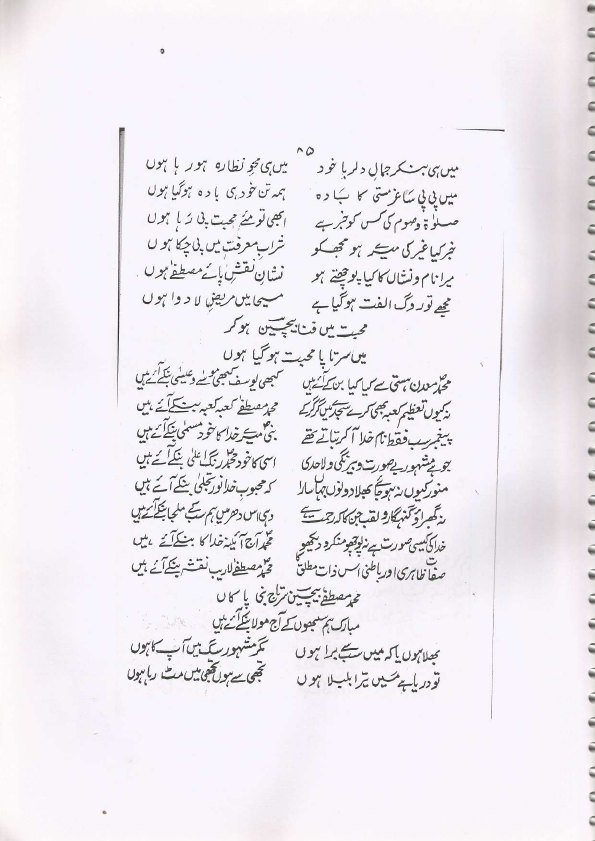 ۸۵
میں ہی بنکر جمالِ دلربا خود میں ہی محوِ نظارہ ہو رہا ہوں
میں پی پی ساغرِ مستی کا بادہ ہمہ تن خود ہی بادہ ہو گیا ہوں
صلوٰۃ و صوم کی کس کو خبر ہے ابھی تو مئے محبت پی رہا ہوں
خبر کیا غیر کی میرے ہو مجھکو شرابِ معرفت میں پی چکا ہوں
میرا نام و نشاں کا کیا پوچھتے ہو نشانِ نقشِ پائے مصطفےٰ ہوں
مجھے تو روگ الفت ہو گیا ہے مسیحا میں مریضِ لا دوا ہوں
محبت میں فنا بیچین ہو کر
میں سرتاپا محبت ہو گیا ہوں
محمدؐ معدنِ ہستی سے کیا کیا بن کے آئے ہیں کبھی یوسف کبھی موسےٰ و عیسیٰ بنکے آئے ہیں
نہ کیوں تعظیم کعبہ بھی کرے سجدے میں گر گر کے محمدؐ مصطفےٰ کعبہ کا کعبہ بنکے آئے ہیں
پیغمبر سب فقط نام خدا آ کر بتاتے تھے نبیؐ میرے خدا کا خود مسمیٰ بنکے آئے ہیں
جو ہے مشہور بے صورت و بیرنگی و لاحدی اسی کا خود محمدؐ رنگِ اعلیٰ بنکے آئے ہیں
منور کیوں نہ ہو جائے بھلا دونوں جہاں سارا کہ محبوبِ خدا نورِ تجلیٰ بنکے آئے ہیں
نہ گھبراؤ گنہگارو لقب جن کا کہ رحمت ہے وہی اس دھر میں ہم سب کے ملجا بنکے آئے ہیں
خدا کی کیسی صورت ہے نہ پوچھو منکرو دیکھو محمدؐ آج آئینہ خدا کا بنکے آئے ہیں
صفاتِ ظاہری اور باطنی اس ذاتِ مطلق کا محمدؐ مصطفےٰ لاریب نقشہ بنکے آئے ہیں
محمدؐ مصطفےٰ بیچین سرتاجِ نبی پاکاں
مبارک ہم سبھوں کے آج مولا بنکے آئے ہیں
بھلا ہوں یا کہ میں سب سے برا ہوں مگر مشہور سگ میں آپ کا ہوں
تو دریا ہے میں تیرا بلبلا ہوں تجھی سے ہوں تجھی میں مٹ رہا ہوں